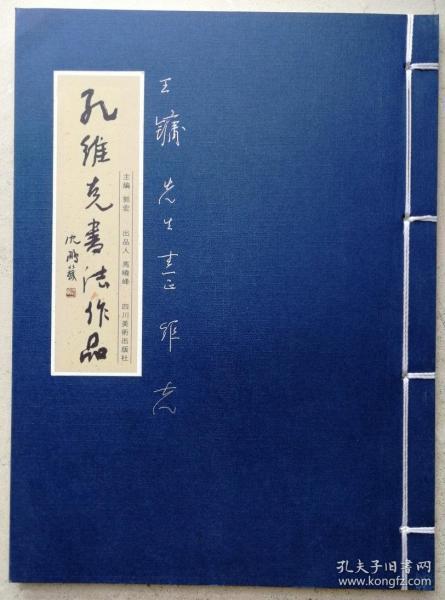 孔維克書法作品
沈鹏籖
主编 郭宏 出品人 馬曉峰 四川美術出版社
王鏞先生书正 维克
孔夫子旧书网
www.kongfz.com